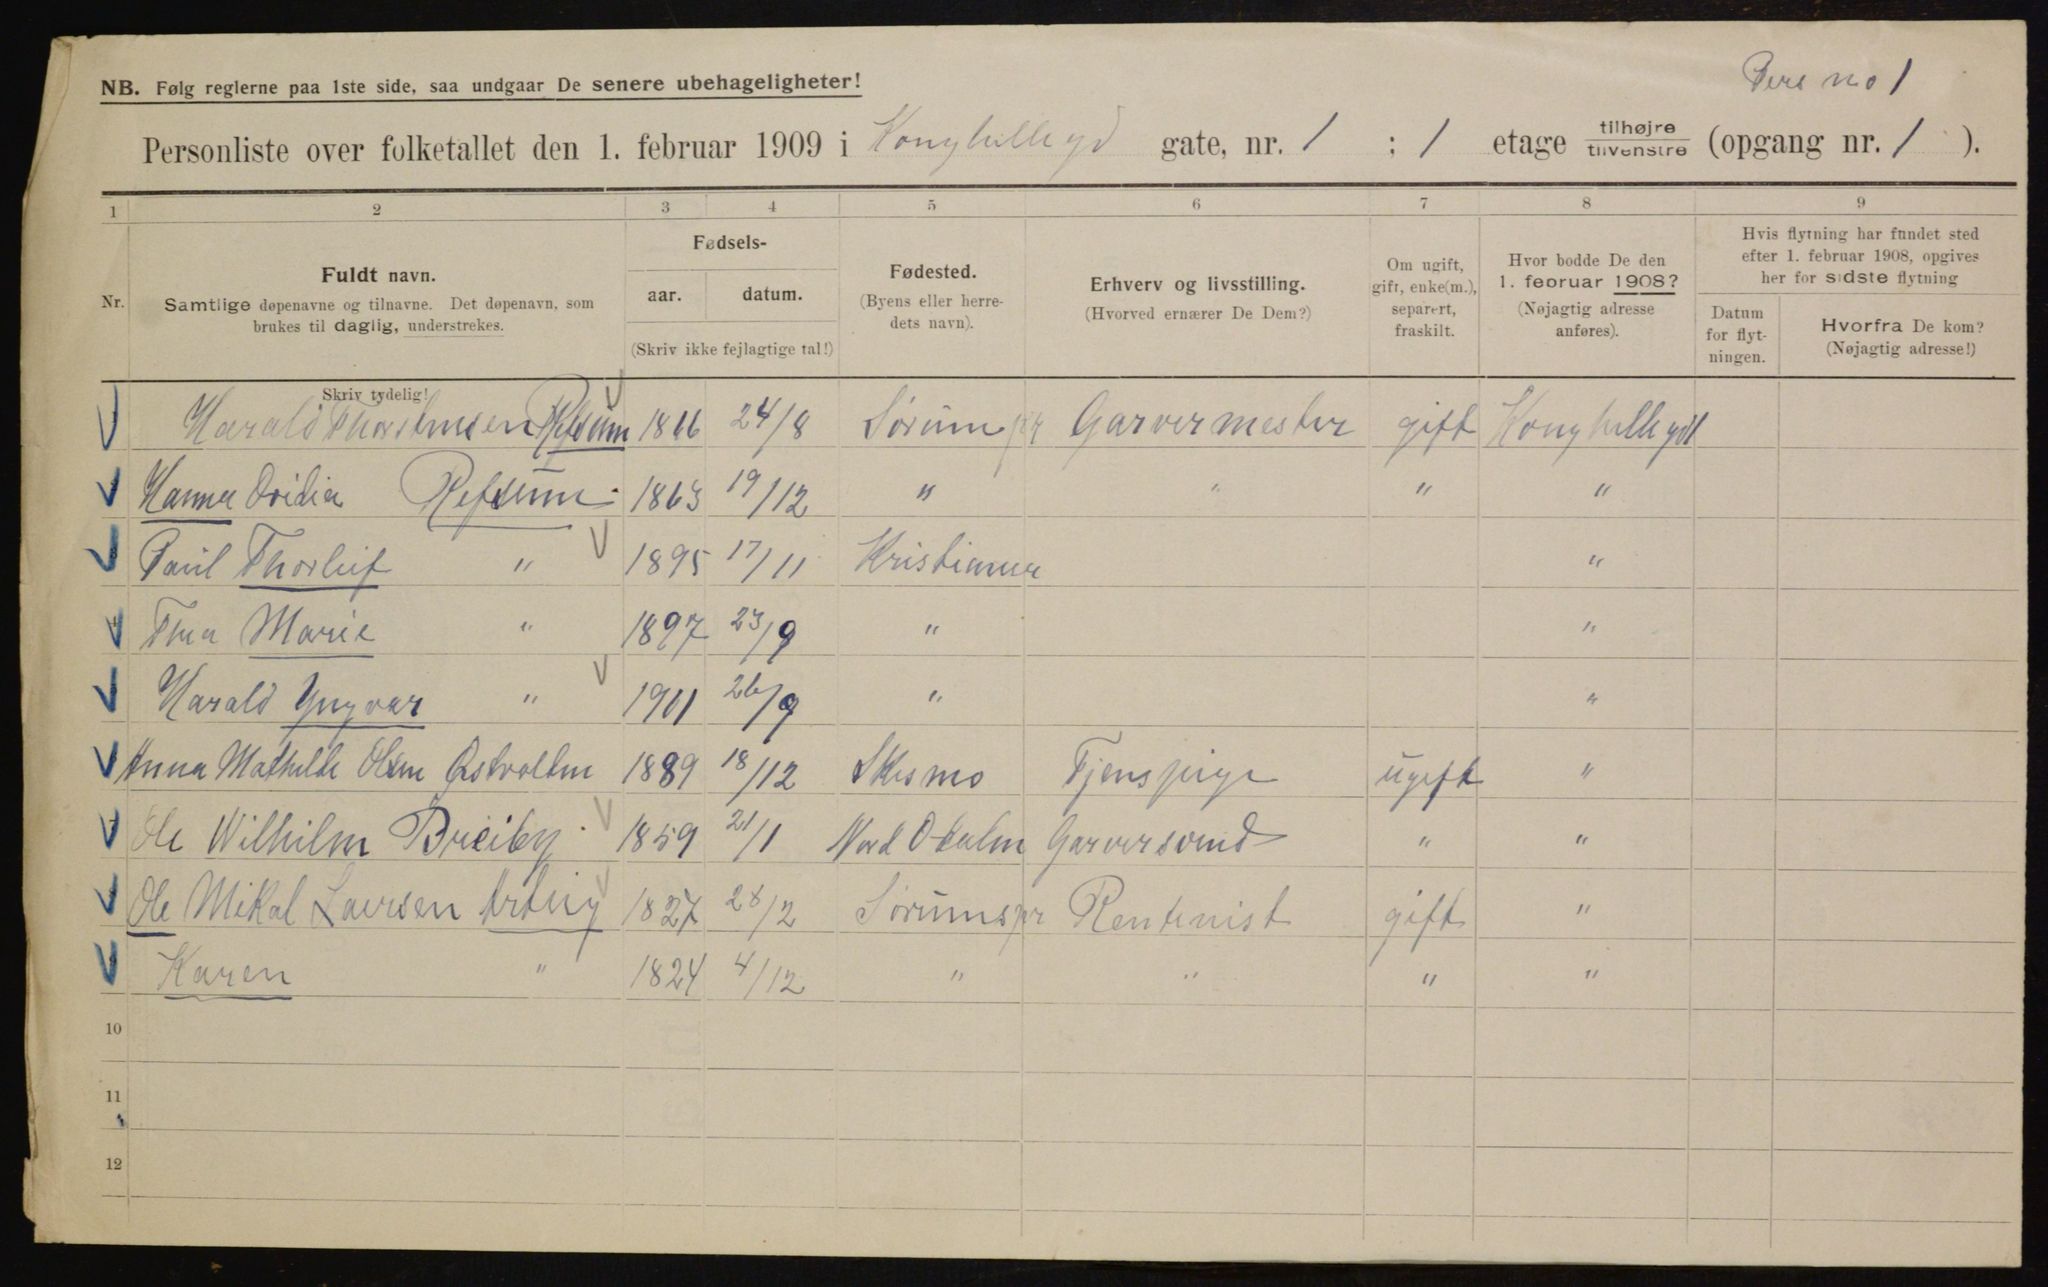 Pers no 1
NB. Følg reglerne paa 1ste side, saa undgaar De senere ubehageligheter!
Personliste over folketallet den 1. februar 1909 i Konghellegd gate, nr. 1 ; 1 etage tilhøjre tilvenstre (opgang nr. 1 ).
1 2 3 4 5 6 7 8 9
Nr.
Fuldt navn.
Samtlige døpenavne og tilnavne. Det døpenavn, som
brukes til daglig, understrekes.
Skriv tydelig!
Fødsels-
aar. datum.
(Skriv ikke fejlagtige tal!)
Fødested.
(Byens eller herre-
dets navn).
Erhverv og livsstilling.
(Hvorved ernærer De Dem?)
Om ugift,
gift, enke(m.),
separert,
fraskilt.
Hvor bodde De den
1. februar 1908?
(Nøjagtig adresse
anføres).
Hvis flytning har fundet sted
efter 1. februar 1908, opgives
her for sidste flytning
Datum
for flyt-
ningen.
Hvorfra De kom?
(Nøjagtig adresse!)
Harald Thorstensen Refsum 1866 24/8 Sørum pr Garvermester gift Konghellegd 1
Hanna Ovidia Refsum 1863 19/12 " " " "
Paul Thorleif " 1895 17/11 Kristiania "
Marie " 1897 23/9 " "
Harald Yngvar " 1901 26/9 " "
Anna Mathilde Olsen Østvolden 1889 18/12 Skesmo Tjenspige ugift "
Ole Wilhilm Breiby 1859 21/1 Nord Odalen Garversvend " "
Ole Mikal Larsen 1827 28/12 Sørumspr Rentenist gift "
Karen " 1824 4/12 " " " "
10
11
12